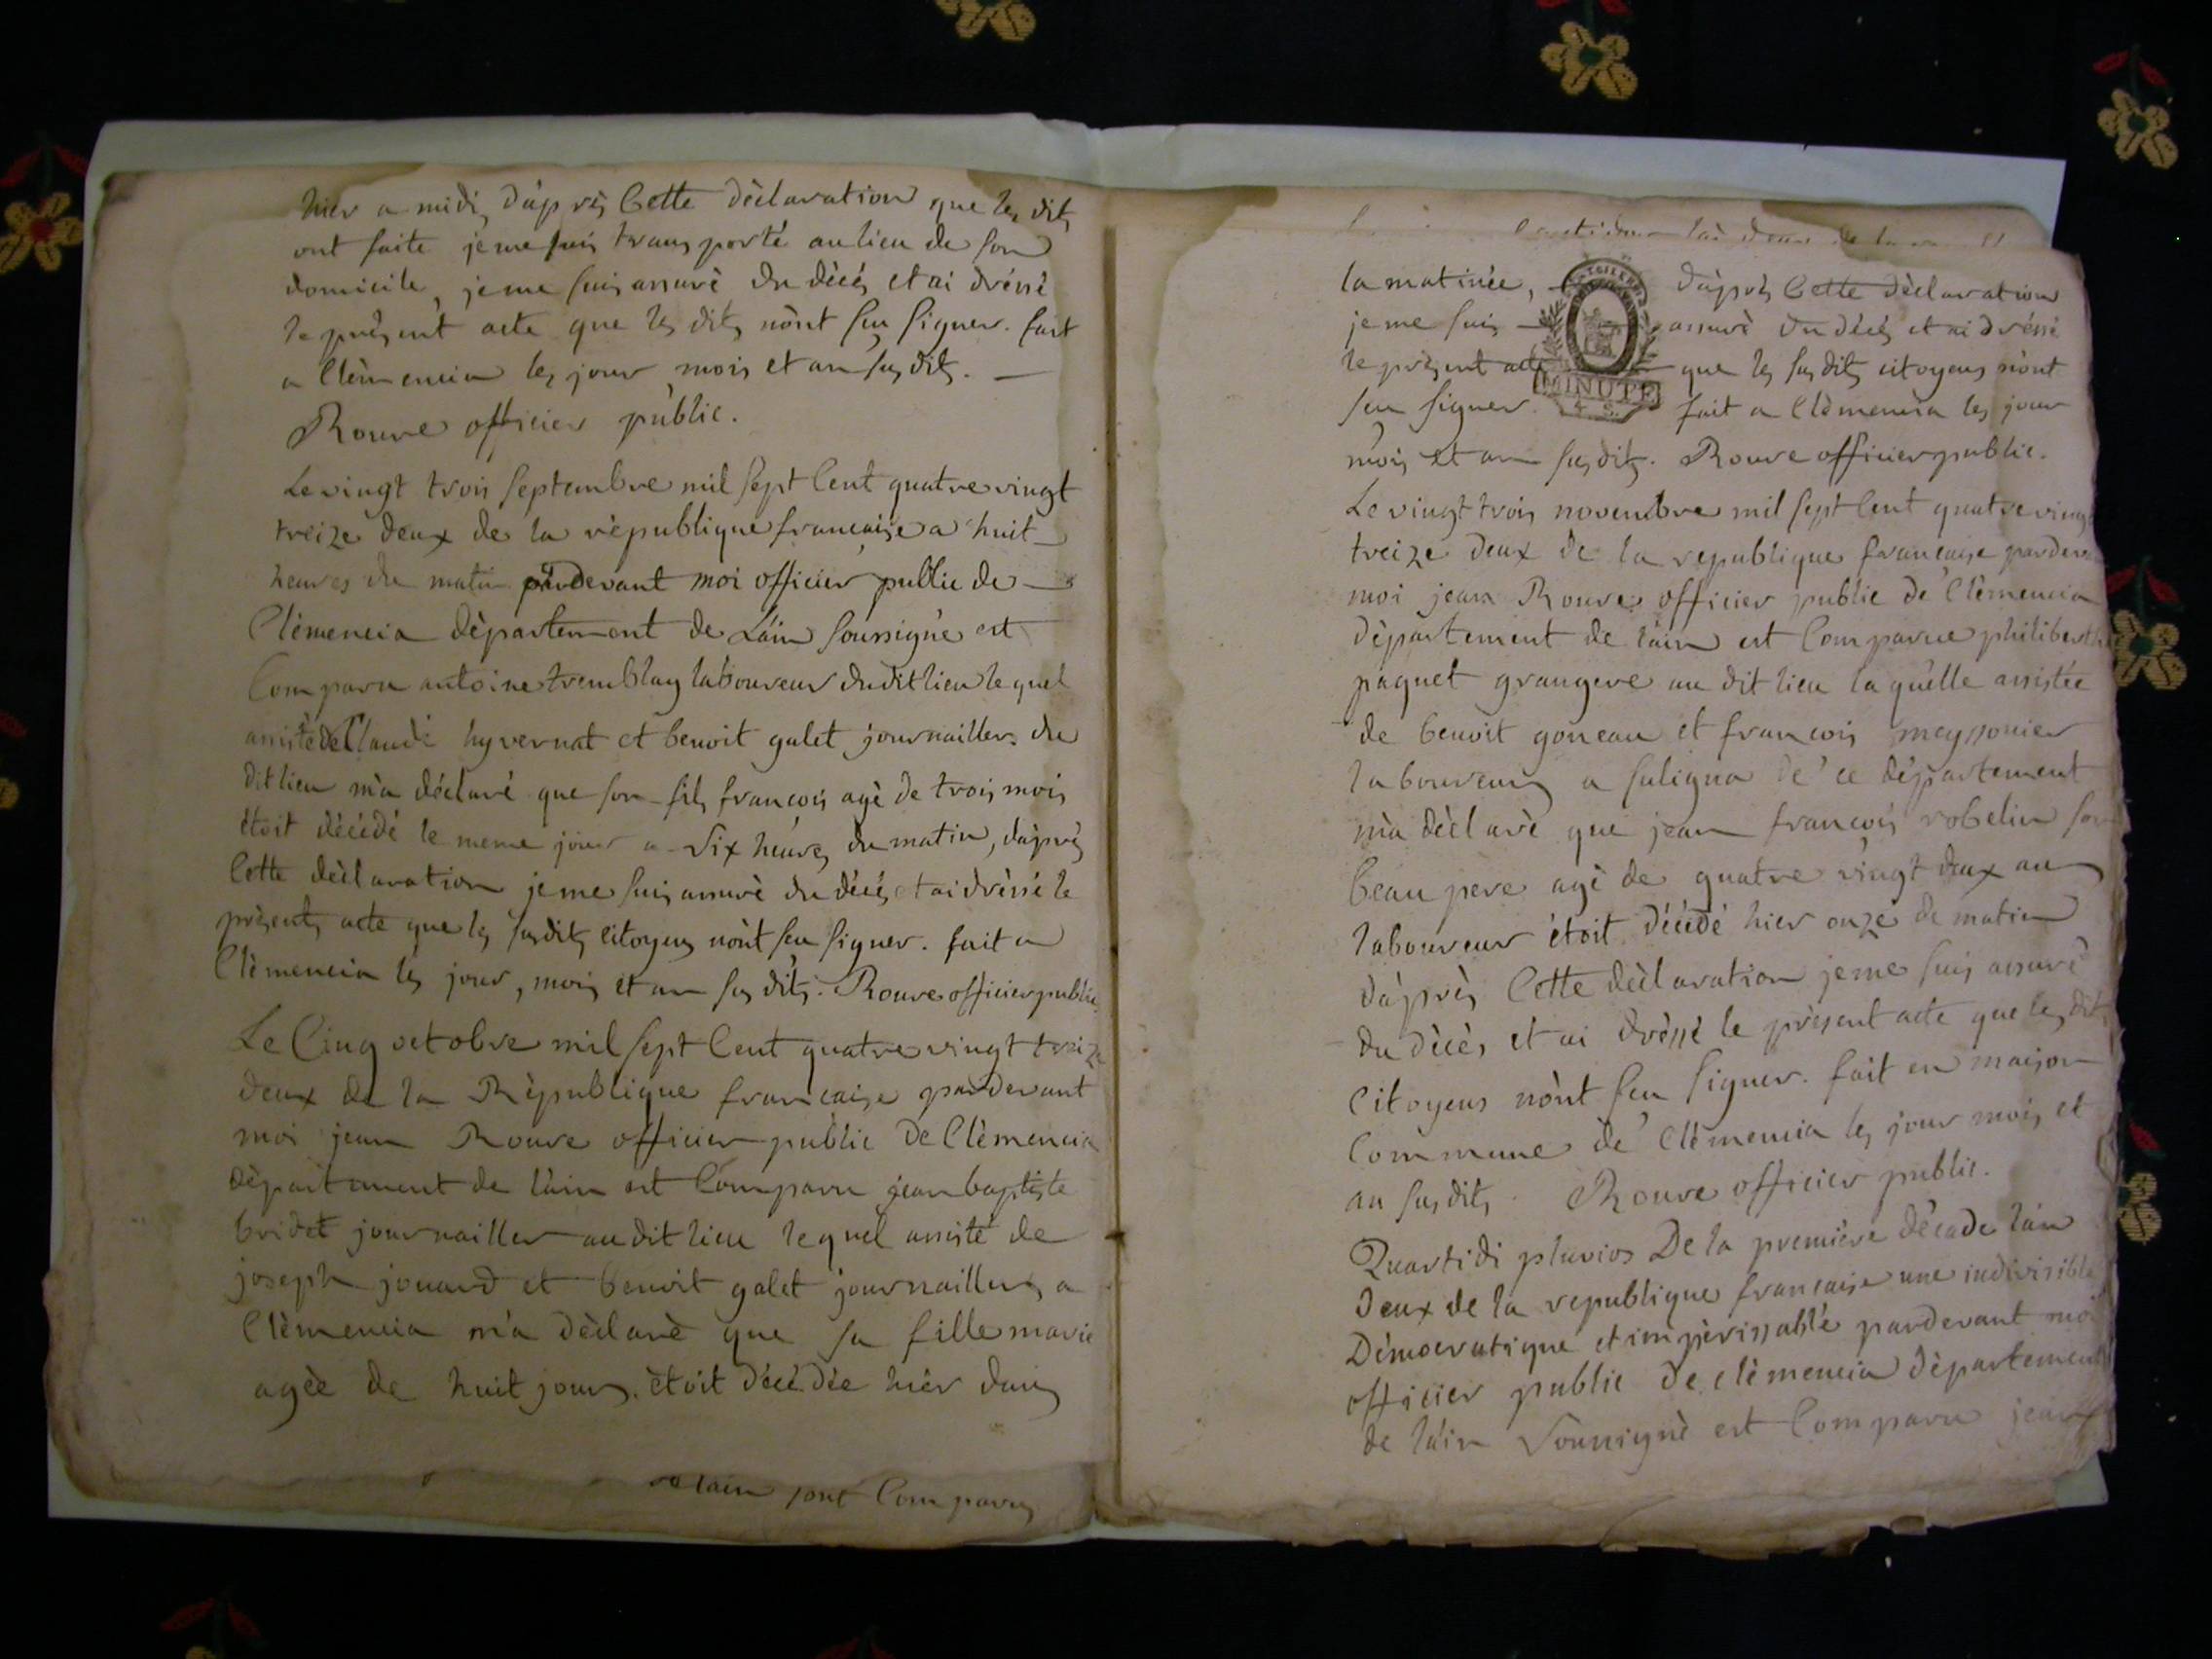 hier a midi, dáprès Cette dèclaration que les dits
ont faite je me suis transporté au lieu de son
domicile, je me suis assurè du dècès et ai drèssè
le prèsent acte que les dits nònt seu signer. fait
a Clèmencia les jour mois et an susdits. —
Rouve officier public.
Le vingt trois septembre mil sept Cent quatre vingt
treize deux de la rèpublique francaise a huit
heures du matin pardevant moi officier public de
Clèmencia dèpartement de Láin soussignè est
Comparu antoine tremblay laboureur dudit lieu lequel
assistè de Claude hyvernat et benoit galet journaillers du
dit lieu mà déclaré que son fils francois agè de trois mois
ètoit dècèdè le meme jour a six heures du matin, dáprès
Cette dèclaration je me suis assurè du dècès et ai drèssè le
prèsents acte que les susdits citoyens nònt seu signer. fait a
Clèmencia les jour, mois et an susdits. Rouve officier public
Le Cinq octobre mil sept Cent quatre vingt treize
deux de la Rèpublique francaise pardevant
moi jean Rouve officier public de Clèmencia
dèpartement de láin est Comparu jean baptiste
bridet journailler audit lieu lequel assisté de
joseph jouard et benoit galet journaillers a
Clèmencia mà dèclarè que sa fille marie
agèe de huit jours ètoit décédée hier dans
de lain sont Comparus
la matinèe, dáprès Cette dèclaration
je me suis assurè du dècès et ai drèssè
le prèsent acte que les susdits citoyens nònt
seu signer. fait a Clèmencia les jour
MINUTE
mois et an susdits. Rouve officier public.
Le vingt trois novembre mil sept Cent quatre vingt
treize deux de la republique francaise pardeva
moi jean Rouve officier public de Clèmencia
dèpartement de láin est Comparue philiberte
paquet grangere au dit lieu laquèlle assistèe
de benoit goneau et francois meyssonier
laboureurs a saligna de ce dèpartement
mà dèclarè que jean francois robelin son
beau pere agè de quatre vingt deux ans
laboureur étoit décedé hier onze de matin
dáprès Cette dèclaration je me suis assurè
du dècès et ai drèssè le prèsent acte que les dits
Citoyens nònt seu signer. fait en maison
Commune de Clèmencia les jour mois et
an susdits. Rouve officier public.
Quartidi pluvios De la première dècade láin
deux de la republique francaise une indivisible
Dèmocratique et impèrissablè pardevant moi
officier public de clèmencia dèpartement
de láin soussignè est Comparu jean